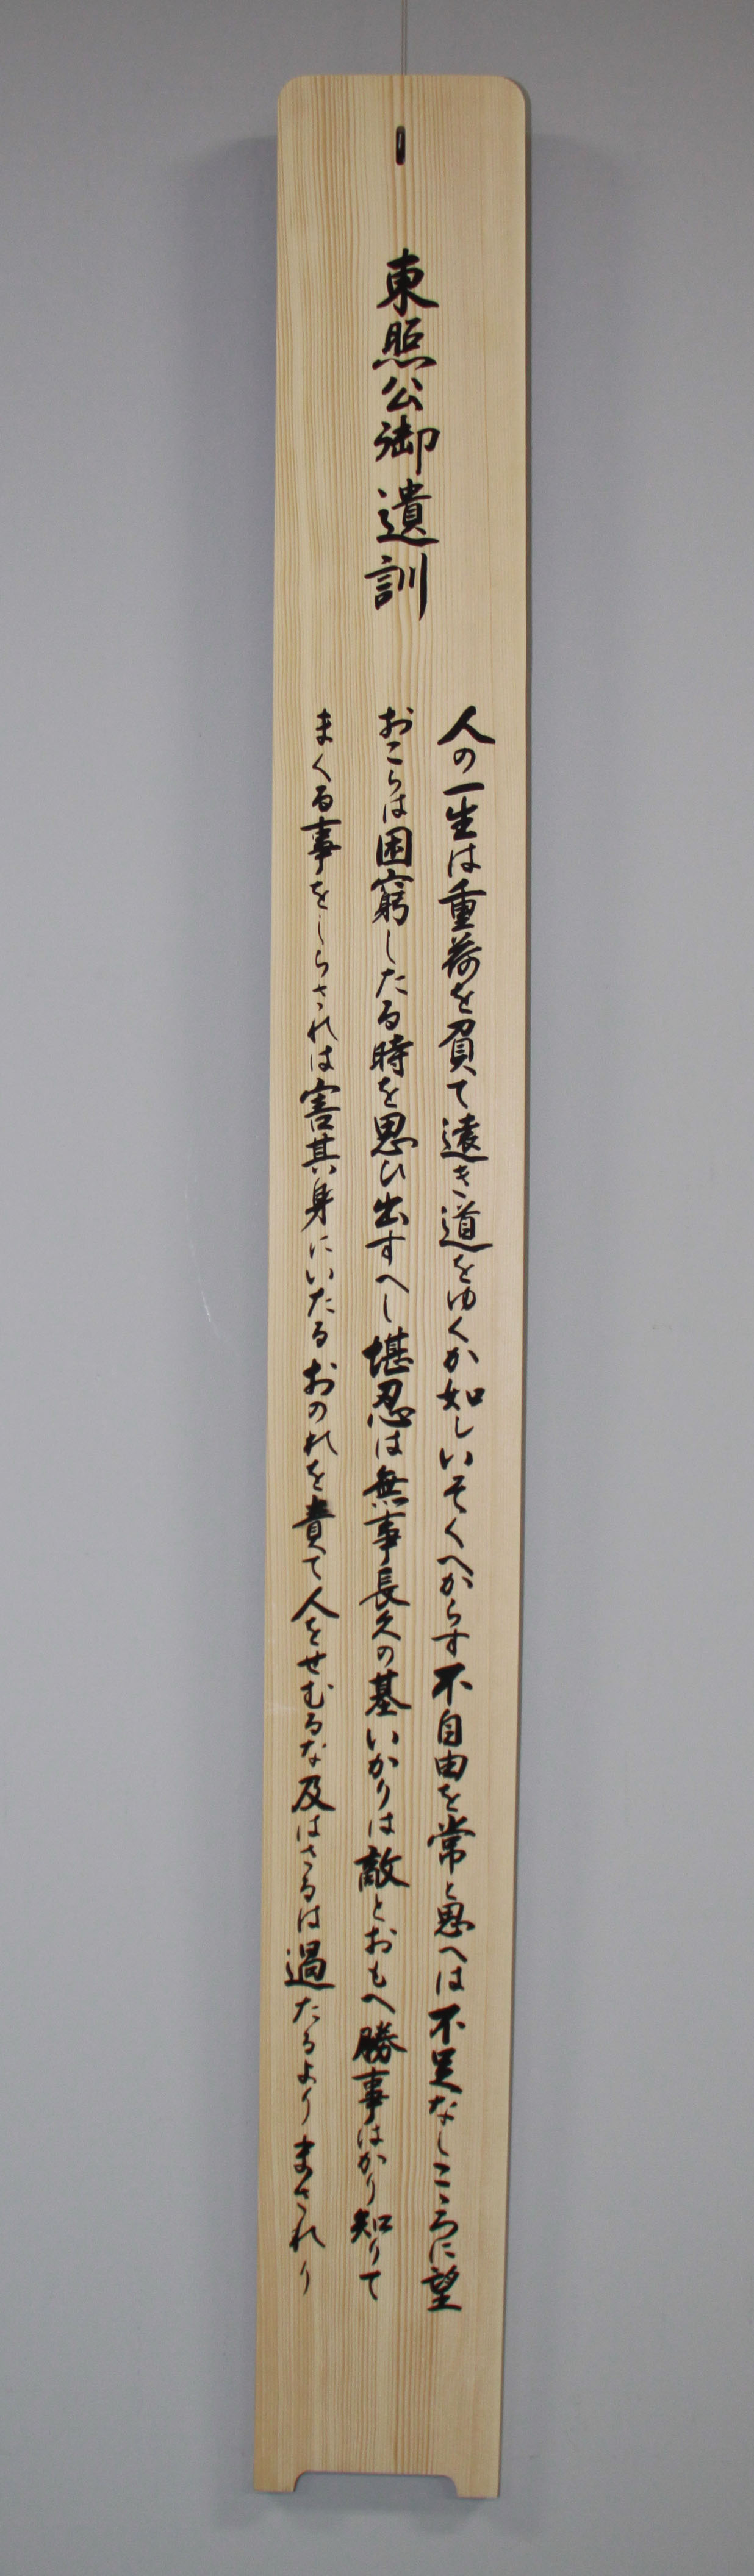 東照公御遺訓
人の一生は重荷を負て遠き道をゆくか如しいそくへからす不自由を常と思へは不足なしこゝろに望
おこらは困窮したる時を思ひ出すへし堪忍は無事長久の基いかりは敵とおもへ勝事はかり知りて
まくる事をしらされは害其身にいたるおのれを責て人をせむるな及はさるは過たるよりまされり